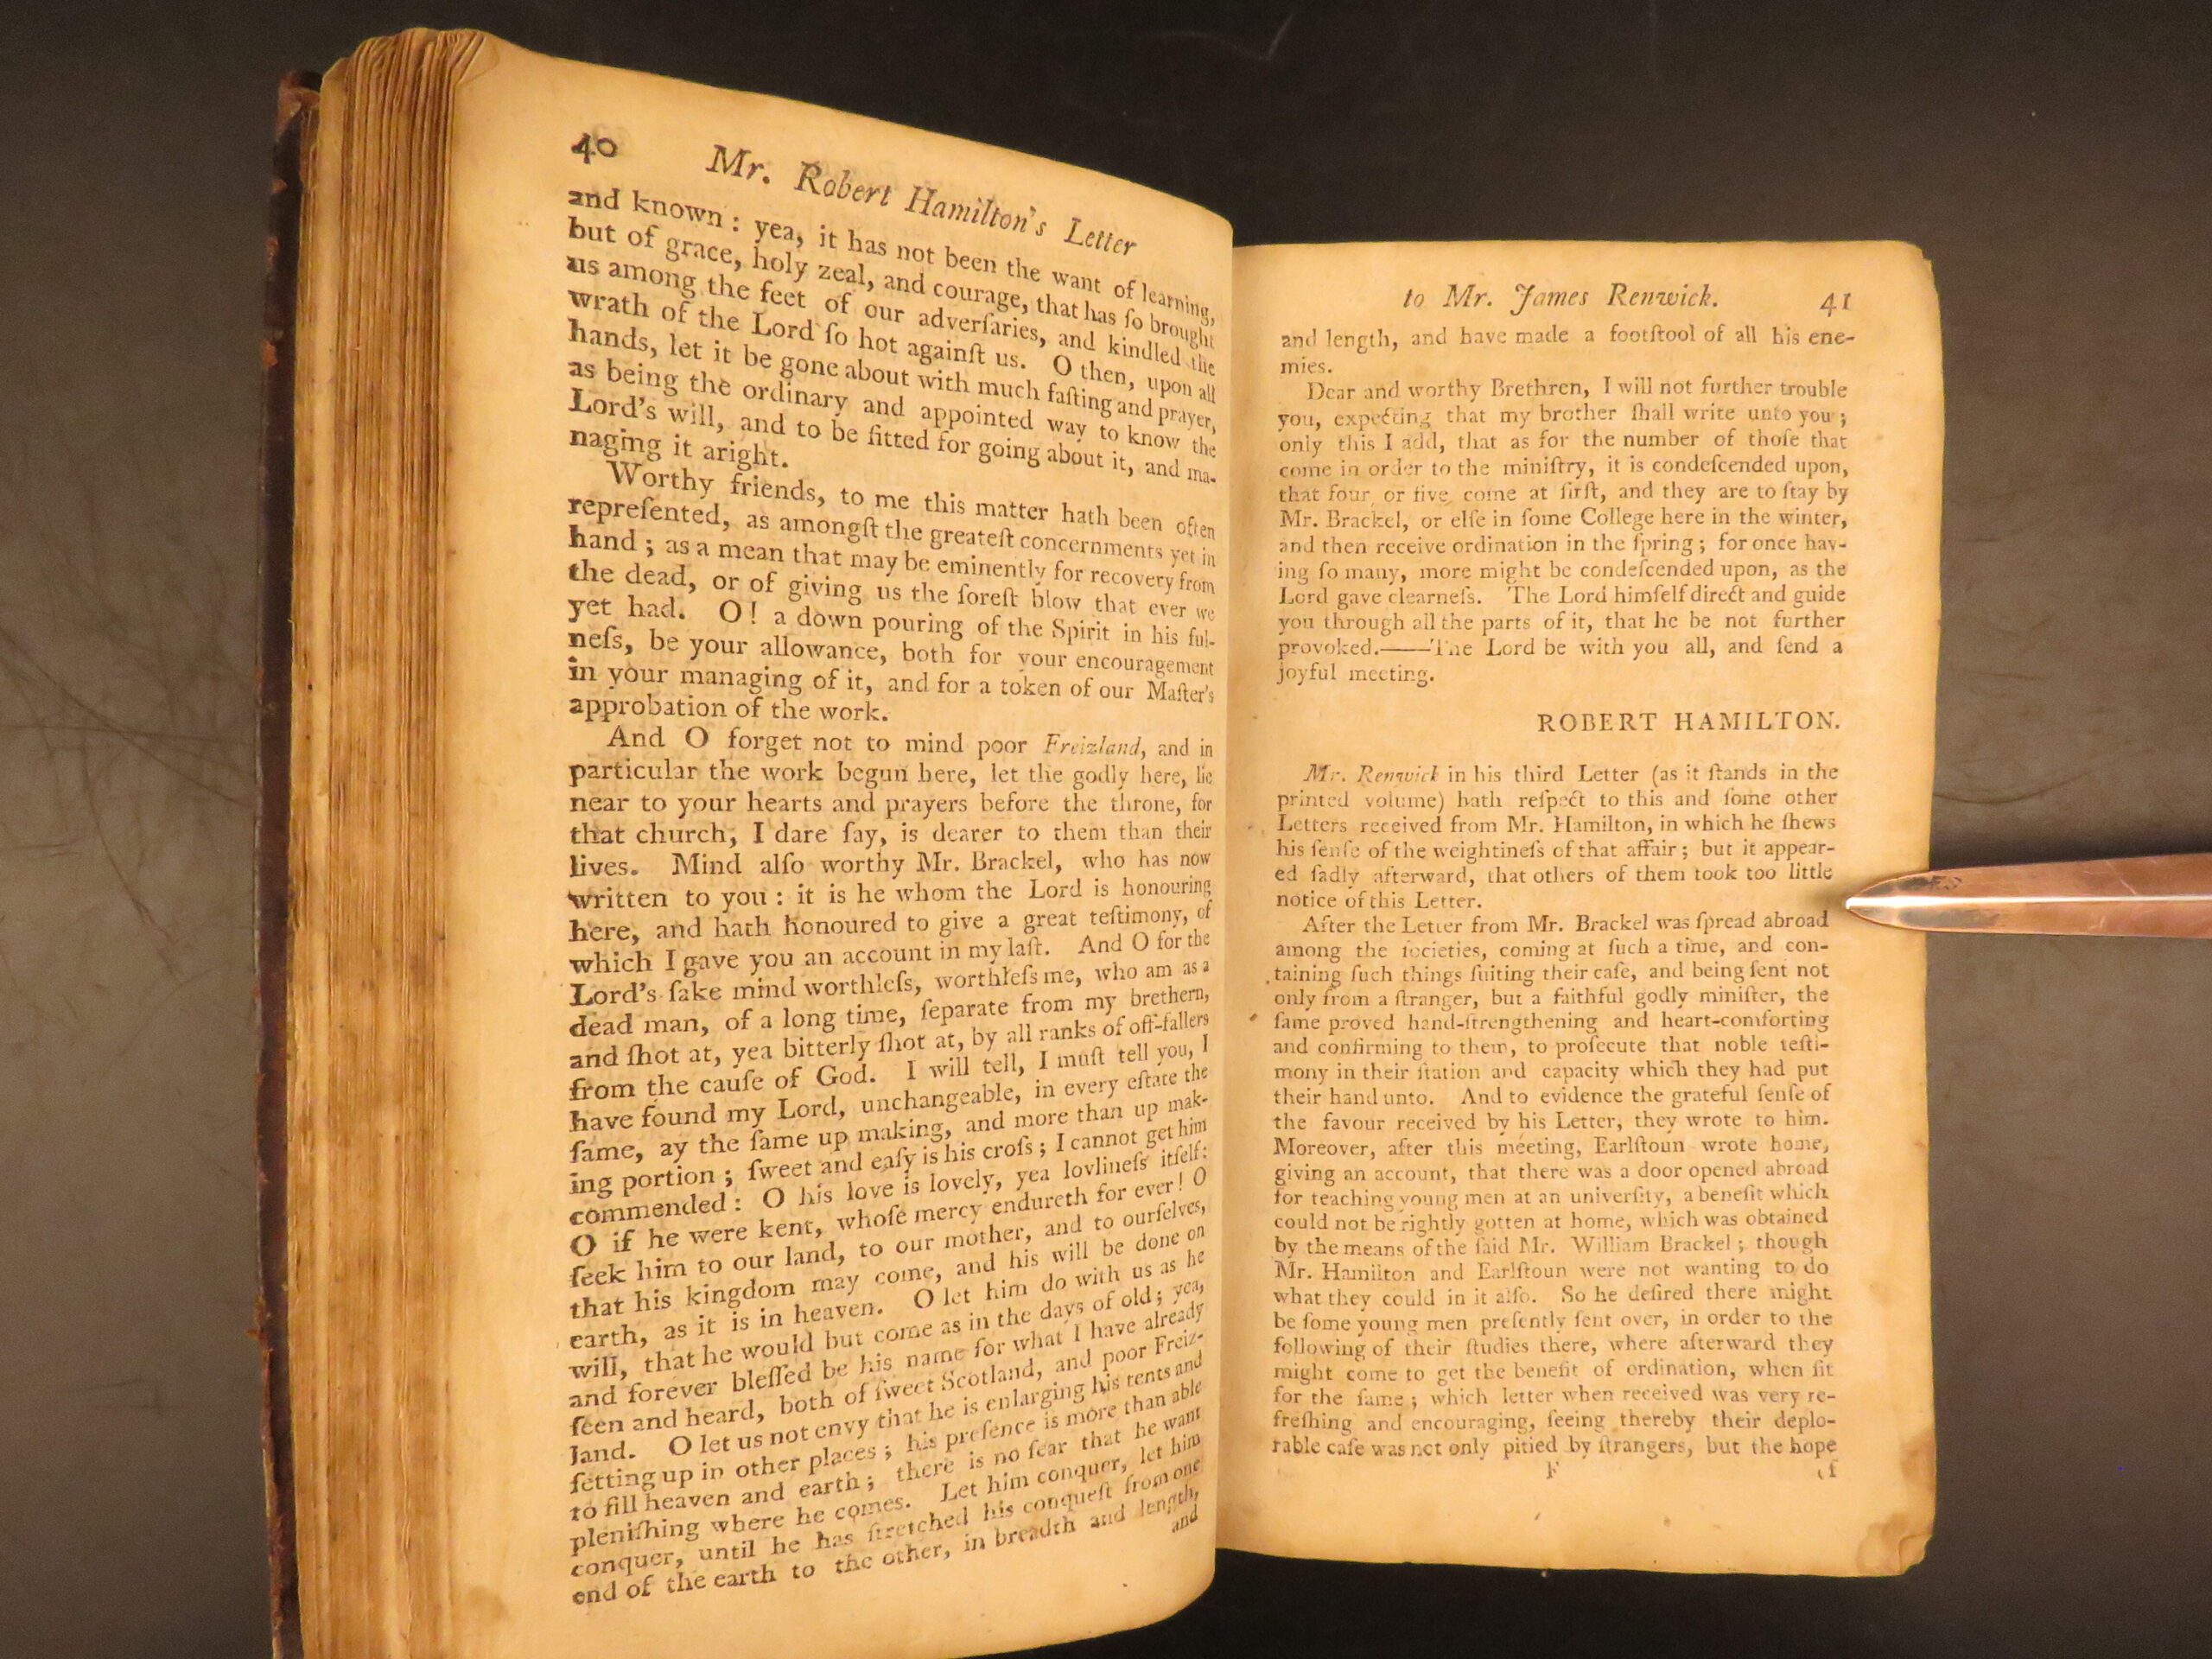 40 Mr. Robert Hamilton's Letter
and known : yea, it has not been the want of learning,
but of grace, holy zeal, and courage, that has ſo brought
us among the feet of our adverſaries, and kindled the
wrath of the Lord ſo hot againſt us. O then, upon all
hands, let it be gone about with much faſting and prayer,
as being the ordinary and appointed way to know the
Lord's will, and to be fitted for going about it, and ma-
naging it aright.
Worthy friends, to me this matter hath been often
repreſented, as amongſt the greateſt concernments yet in
hand ; as a mean that may be eminently for recovery from
the dead, or of giving us the ſoreſt blow that ever we
yet had. O! a down pouring of the Spirit in his ful-
neſs, be your allowance, both for your encouragement
in your managing of it, and for a token of our Maſter's
approbation of the work.
And O forget not to mind poor Freizland, and in
particular the work begun here, let the godly here, lie
near to your hearts and prayers before the throne, for
that church, I dare ſay, is dearer to them than their
lives. Mind alſo worthy Mr. Brackel, who has now
written to you : it is he whom the Lord is honouring
here, and hath honoured to give a great teſtimony, of
which I gave you an account in my laſt. And O for the
Lord's ſake mind worthleſs, worthleſs me, who am as a
dead man, of a long time, ſeparate from my brethern,
and ſhot at, yea bitterly ſhot at, by all ranks of off-fallers
from the cauſe of God. I will tell, I muſt tell you, I
have found my Lord, unchangeable, in every eſtate the
ſame, ay the ſame up making, and more than up mak-
ing portion ; ſweet and eaſy is his croſs ; I cannot get him
commended : O his love is lovely, yea lovlineſs itſelf:
O if he were kent, whoſe mercy endureth for ever! O
ſeek him to our land, to our mother, and to ourſelves,
that his kingdom may come, and his will be done on
earth, as it is in heaven. O let him do with us as he
will, that he would but come as in the days of old ; yea,
and forever bleſſed be his name for what I have already
ſeen and heard, both of ſweet Scotland, and poor Freiz-
land. O let us not envy that he is enlarging his tents and
ſetting up in other places ; his preſence is more than able
to fill heaven and earth ; there is no fear that he want
pleniſhing where he comes. Let him conquer, let him
conquer, until he has ſtretched his conqueſt from one
end of the earth to the other, in breadth and length,
and
to Mr. James Renwick. 41
and length, and have made a footſtool of all his ene-
mies.
Dear and worthy Brethren, I will not further trouble
you, expecting that my brother ſhall write unto you ;
only this I add, that as for the number of thoſe that
come in order to the miniſtry, it is condeſcended upon,
that four, or five, come at firſt, and they are to ſtay by
Mr. Brackel, or elſe in ſome College here in the winter,
and then receive ordination in the ſpring ; for once hav-
ing ſo many, more might be condeſcended upon, as the
Lord gave clearneſs. The Lord himſelf direct and guide
you through all the parts of it, that he be not further
provoked.——The Lord be with you all, and ſend a
joyful meeting.
ROBERT HAMILTON.
Mr. Renwick in his third Letter (as it ſtands in the
printed volume) hath reſpect to this and ſome other
Letters received from Mr. Hamilton, in which he ſhews
his ſenſe of the weightineſs of that affair ; but it appear-
ed ſadly afterward, that others of them took too little
notice of this Letter.
After the Letter from Mr. Brackel was ſpread abroad
among the ſocieties, coming at ſuch a time, and con-
taining ſuch things ſuiting their caſe, and being ſent not
only from a ſtranger, but a faithful godly miniſter, the
ſame proved hand-ſtrengthening and heart-comforting
and confirming to them, to proſecute that noble teſti-
mony in their ſtation and capacity which they had put
their hand unto. And to evidence the grateful ſenſe of
the favour received by his Letter, they wrote to him.
Moreover, after this meeting, Earlſtoun wrote home,
giving an account, that there was a door opened abroad
for teaching young men at an univerſity, a benefit which
could not be rightly gotten at home, which was obtained
by the means of the ſaid Mr. William Brackel ; though
Mr. Hamilton and Earlſtoun were not wanting to do
what they could in it alſo. So he deſired there might
be ſome young men preſently ſent over, in order to the
following of their ſtudies there, where afterward they
might come to get the benefit of ordination, when fit
for the ſame ; which letter when received was very re-
freſhing and encouraging, ſeeing thereby their deplo-
rable caſe was not only pitied by ſtrangers, but the hope
F of